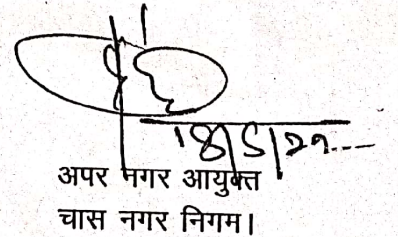 18/5/22
अपर नगर आयुक्त
चास नगर निगम।